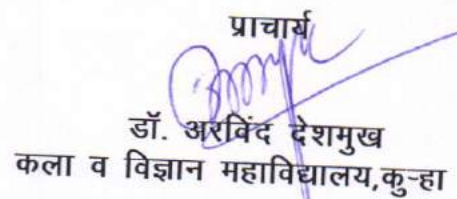 प्राचार्य
डॉ. अरविंद देशमुख
कला व विज्ञान महाविद्यालय,कुऱ्हा